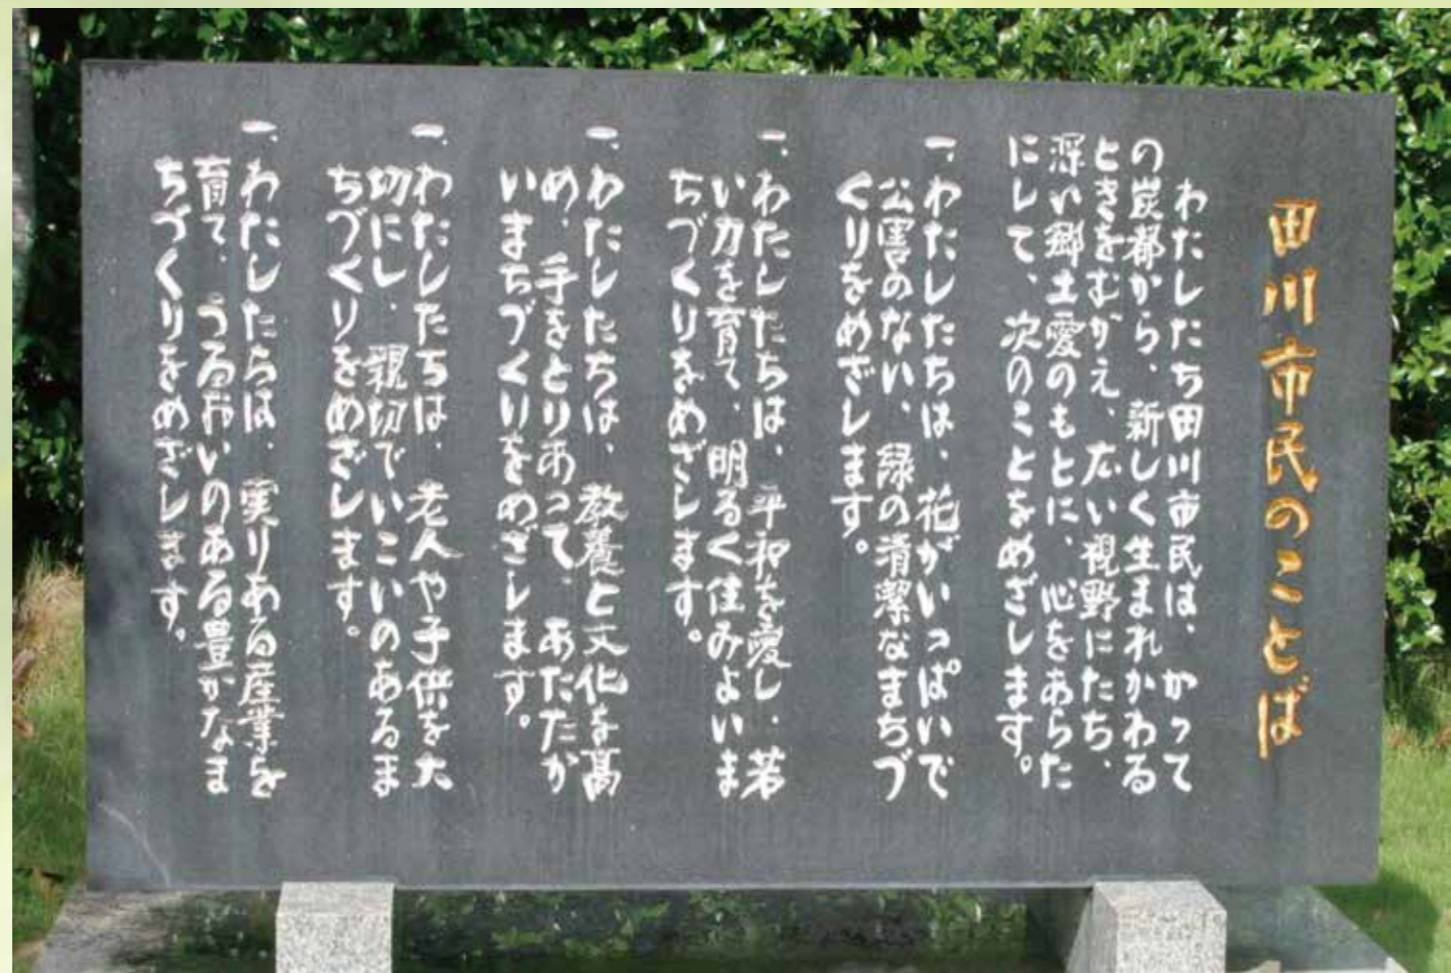 田川市民のことば
わたしたち田川市民は、かつて
の炭都から、新しく生まれかわる
ときをむかえ、広い視野にたち、
深い郷土愛のもとに、心をあらた
にして、次のことをめざします。
一、わたしたちは、花がいっぱいで
公害のない、緑の清潔なまちづ
くりをめざします。
一、わたしたちは、平和を愛し、若
い力を育て、明るく住みよいま
ちづくりをめざします。
一、わたしたちは、教養と文化を高
め、手をとりあって、あたたか
いまちづくりをめざします。
一、わたしたちは、老人や子供を大
切にし、親切でいこいのあるま
ちづくりをめざします。
一、わたしたちは、実りある産業を
育て、うるおいのある豊かなま
ちづくりをめざします。